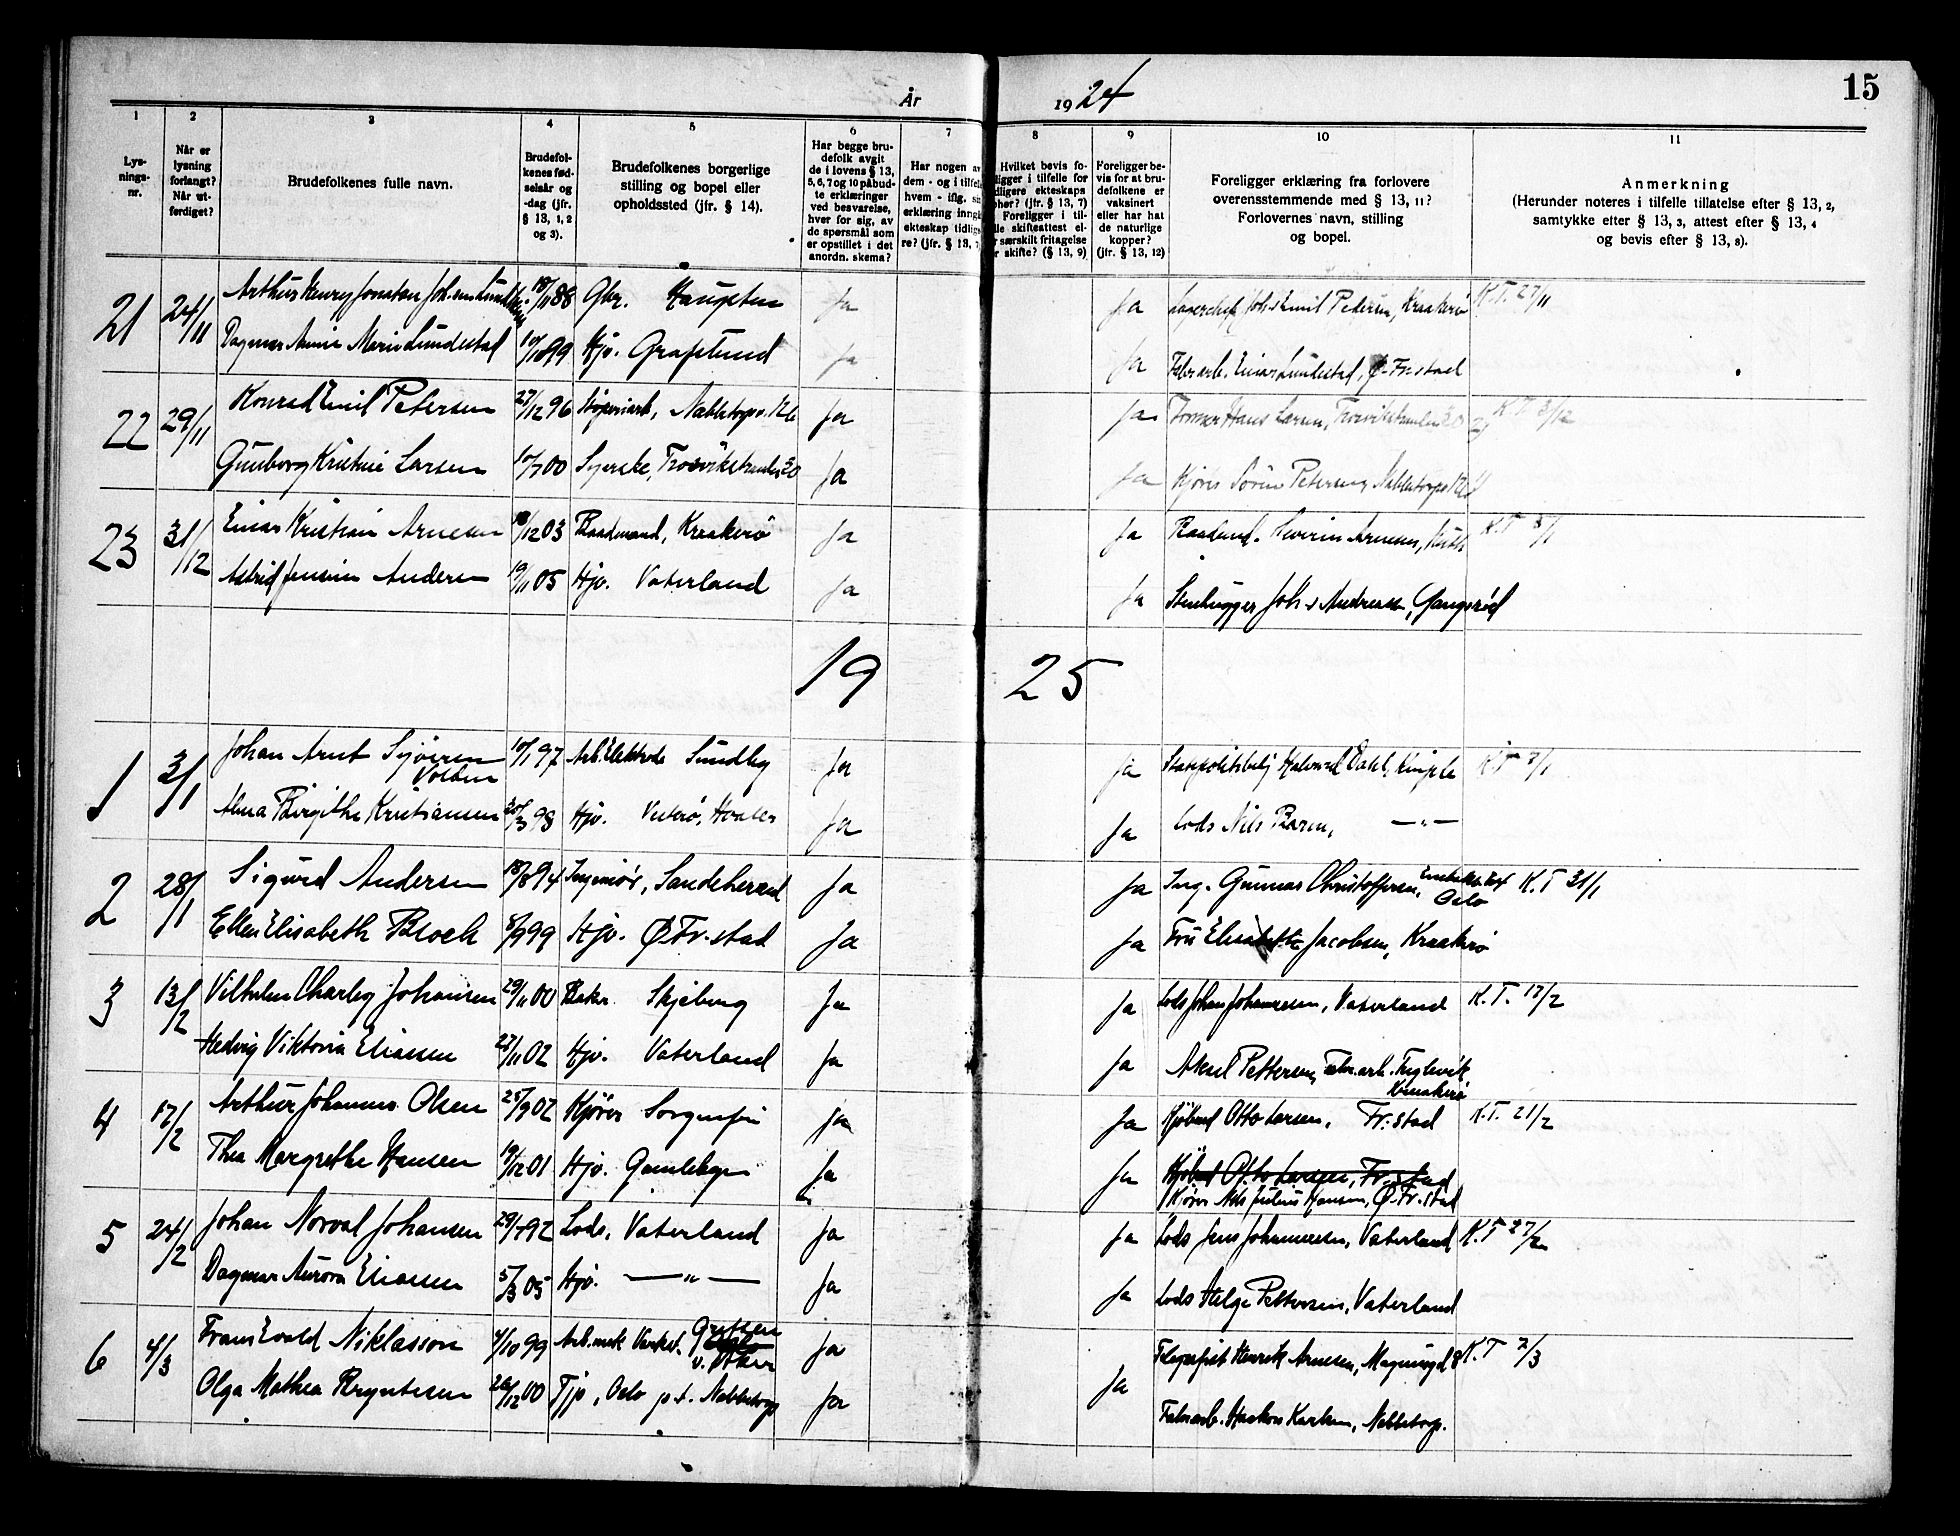 År 1924
15
1 2 3 4 5 6 7 8 9 10 11
Lys-
nings-
nr.
Når er
lysning
forlangt?
Når ut-
ferdiget?
Brudefolkenes fulle navn.
Brudefol-
kenes fød-
selsår og
-dag (jfr.
§ 13, 1, 2
og 3).
Brudefolkenes borgerlige
stilling og bopel eller
opholdssted (jfr. § 14).
Har begge bru-
defolk avgit
de i lovens § 13,
5, 6, 7 og 10 påbud-
te erklæringer
ved besvarelse,
hver for sig, av
de spørsmål som
er opstillet i det
anordn. skema?
Har nogen av
dem - og i tilfelle
hvem - iflg.
erklæring inngå
ekteskap tidlige
re? (jfr. § 13,
Hvilket bevis fo-
ligger i tilfelle for
dligere ekteskaps
phør? (jfr. § 13, 7)
Foreligger i til-
lle skifteattest el-
r særskilt fritagelse
r skifte? (§ 13, 9)
Foreligger be-
vis for at bru-
defolkene er
vaksinert
eller har hat
de naturlige
kopper?
(jfr. § 13, 12)
Foreligger erklæring fra forlovere
overensstemmende med § 13, 11?
Forlovernes navn, stilling
og bopel.
Anmerkning
(Herunder noteres i tilfelle tillatelse efter § 13, 2,
samtykke efter § 13, 3, attest efter § 13, 4
og bevis efter § 13, 8).
21 24/11 Arthur Henry Jonatan 18/11 88 Gbr. Ja Ja Pedersen, Kraakerø K.T. 27/11
Dagmar Annie Marie Lundestad 10/10 99 Hjv. Ja Ja Fabr.arb. Einar Lundestad, Ø-Fr:stad
22 29/11 Konrad Emil Petersen 27/12 96 Støperiarb, Ja Ja Hans Larsen, K.T. 3/12
Gunborg Kristine Larsen 10/7 00 Syerske, Ja Ja Kjører Sören Petersen,
23 31/12 Einar Kristian Arnesen /12 03 Baadmand, Kraakerø Ja Ja Severin Arnesen, K.T. 3/1
Astrid Jensine Andersen 19/11 05 Hjv. Vaterland Ja Ja Stenhugger Joh's Andreasen, Gangsrød
19 25
1 3/1 Johan Arnt Syversen 10/1 97 Arb. Elektrode Sundby Ja Ja Halvard Dahl, K.T 7/1
Volden
Alma Birgithe Kristiansen 30/3 98 Hjv. Vesterø, Hvaler Ja Ja Lods Nils Basen, —"—
2 28/1 Sigurd Andersen 18/8 94 Ingeniør, Sandeherred Ja Ja Ing. Gunnar Christoffersen, K.T 31/1
Oslo
Ellen Elisabeth Block 8/9 99 Hjv. Ø Fr.stad Ja Ja Fru Elisabeth Jacobsen, Kraakerø
3 13/2 Vilhelm Charley Johansen 29/11 00 Baker Skjeberg Ja Ja Lods Johan Johannesen, Vaterland K.T. 17/2
Hedvig Viktoria Eliassen 27/11 02 Hjv. Vaterland Ja Ja Aksel Pettersen, Fabr.arb. Fuglevik
Kraakerø
4 17/2 Arthur Johannes Olsen 25/9 02 Kjører Sorgenfri Ja Ja Kjøbmd Otto Larsen, Fr:stad K.T. 21/2
Thea Margrethe Hansen 19/12 01 Hjv. Gamlebyen Ja Ja Kjøbmd Otto Larsen, Fr.stad
Kjører Nils Julius Hansen, Ø.Fr.stad
5 24/2 Johan Norval Johansen 29/7 92 Lods, Vaterland Ja Ja Lods Jens Johannesen, Vaterland K.T 27/2
Dagmar Aurora Eliassen 5/3 05 Hjv. —"— Ja Ja Lods Helge Pettersen, Vaterland
6 4/3 Frans Evald Niklasson 4/10 99 Arb. mek Verksted. Ja Telegrafist Henrik Arnesen, K.T 7/3
v. Aker
Olga Mathea Bryntesen 20/12 00 Tjp, Oslo p.t. Nabbetorp Ja Ja Fabr.arb. Haakon Karlsen, Nabbetorp.